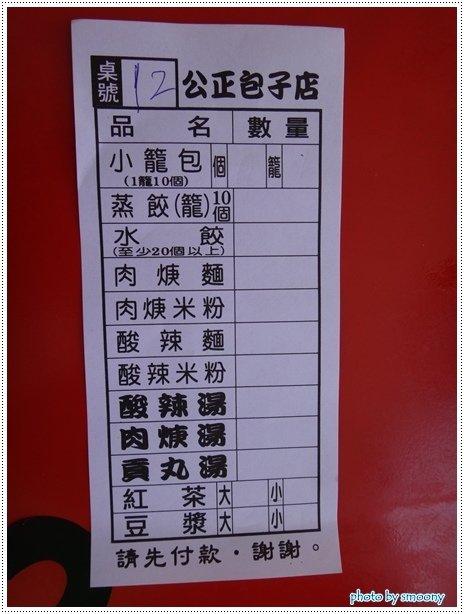 桌號 12 公正包子店
品名 數量
小籠包 個 籠
(1籠10個)
蒸餃(籠)10個
水餃
(至少20個以上)
肉焿麵
肉焿米粉
酸辣麵
酸辣米粉
酸辣湯
肉焿湯
貢丸湯
紅茶 大 小
豆漿 大 小
請先付款·謝謝。
photo by smoony